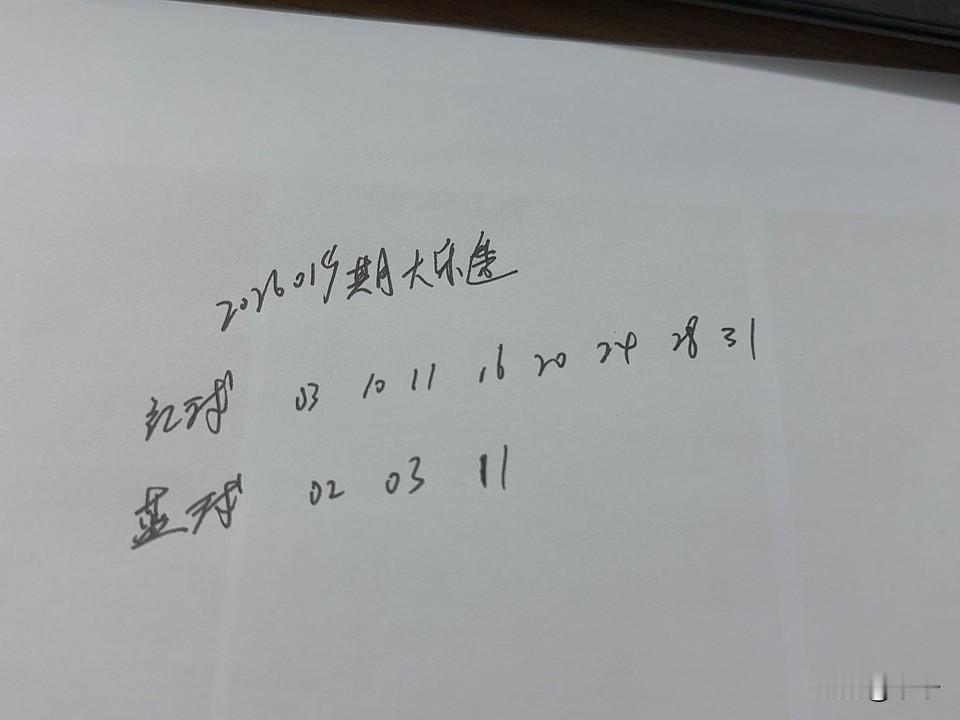 2026019期大乐透
红球 03 10 11 16 20 24 28 31
蓝球 02 03 11